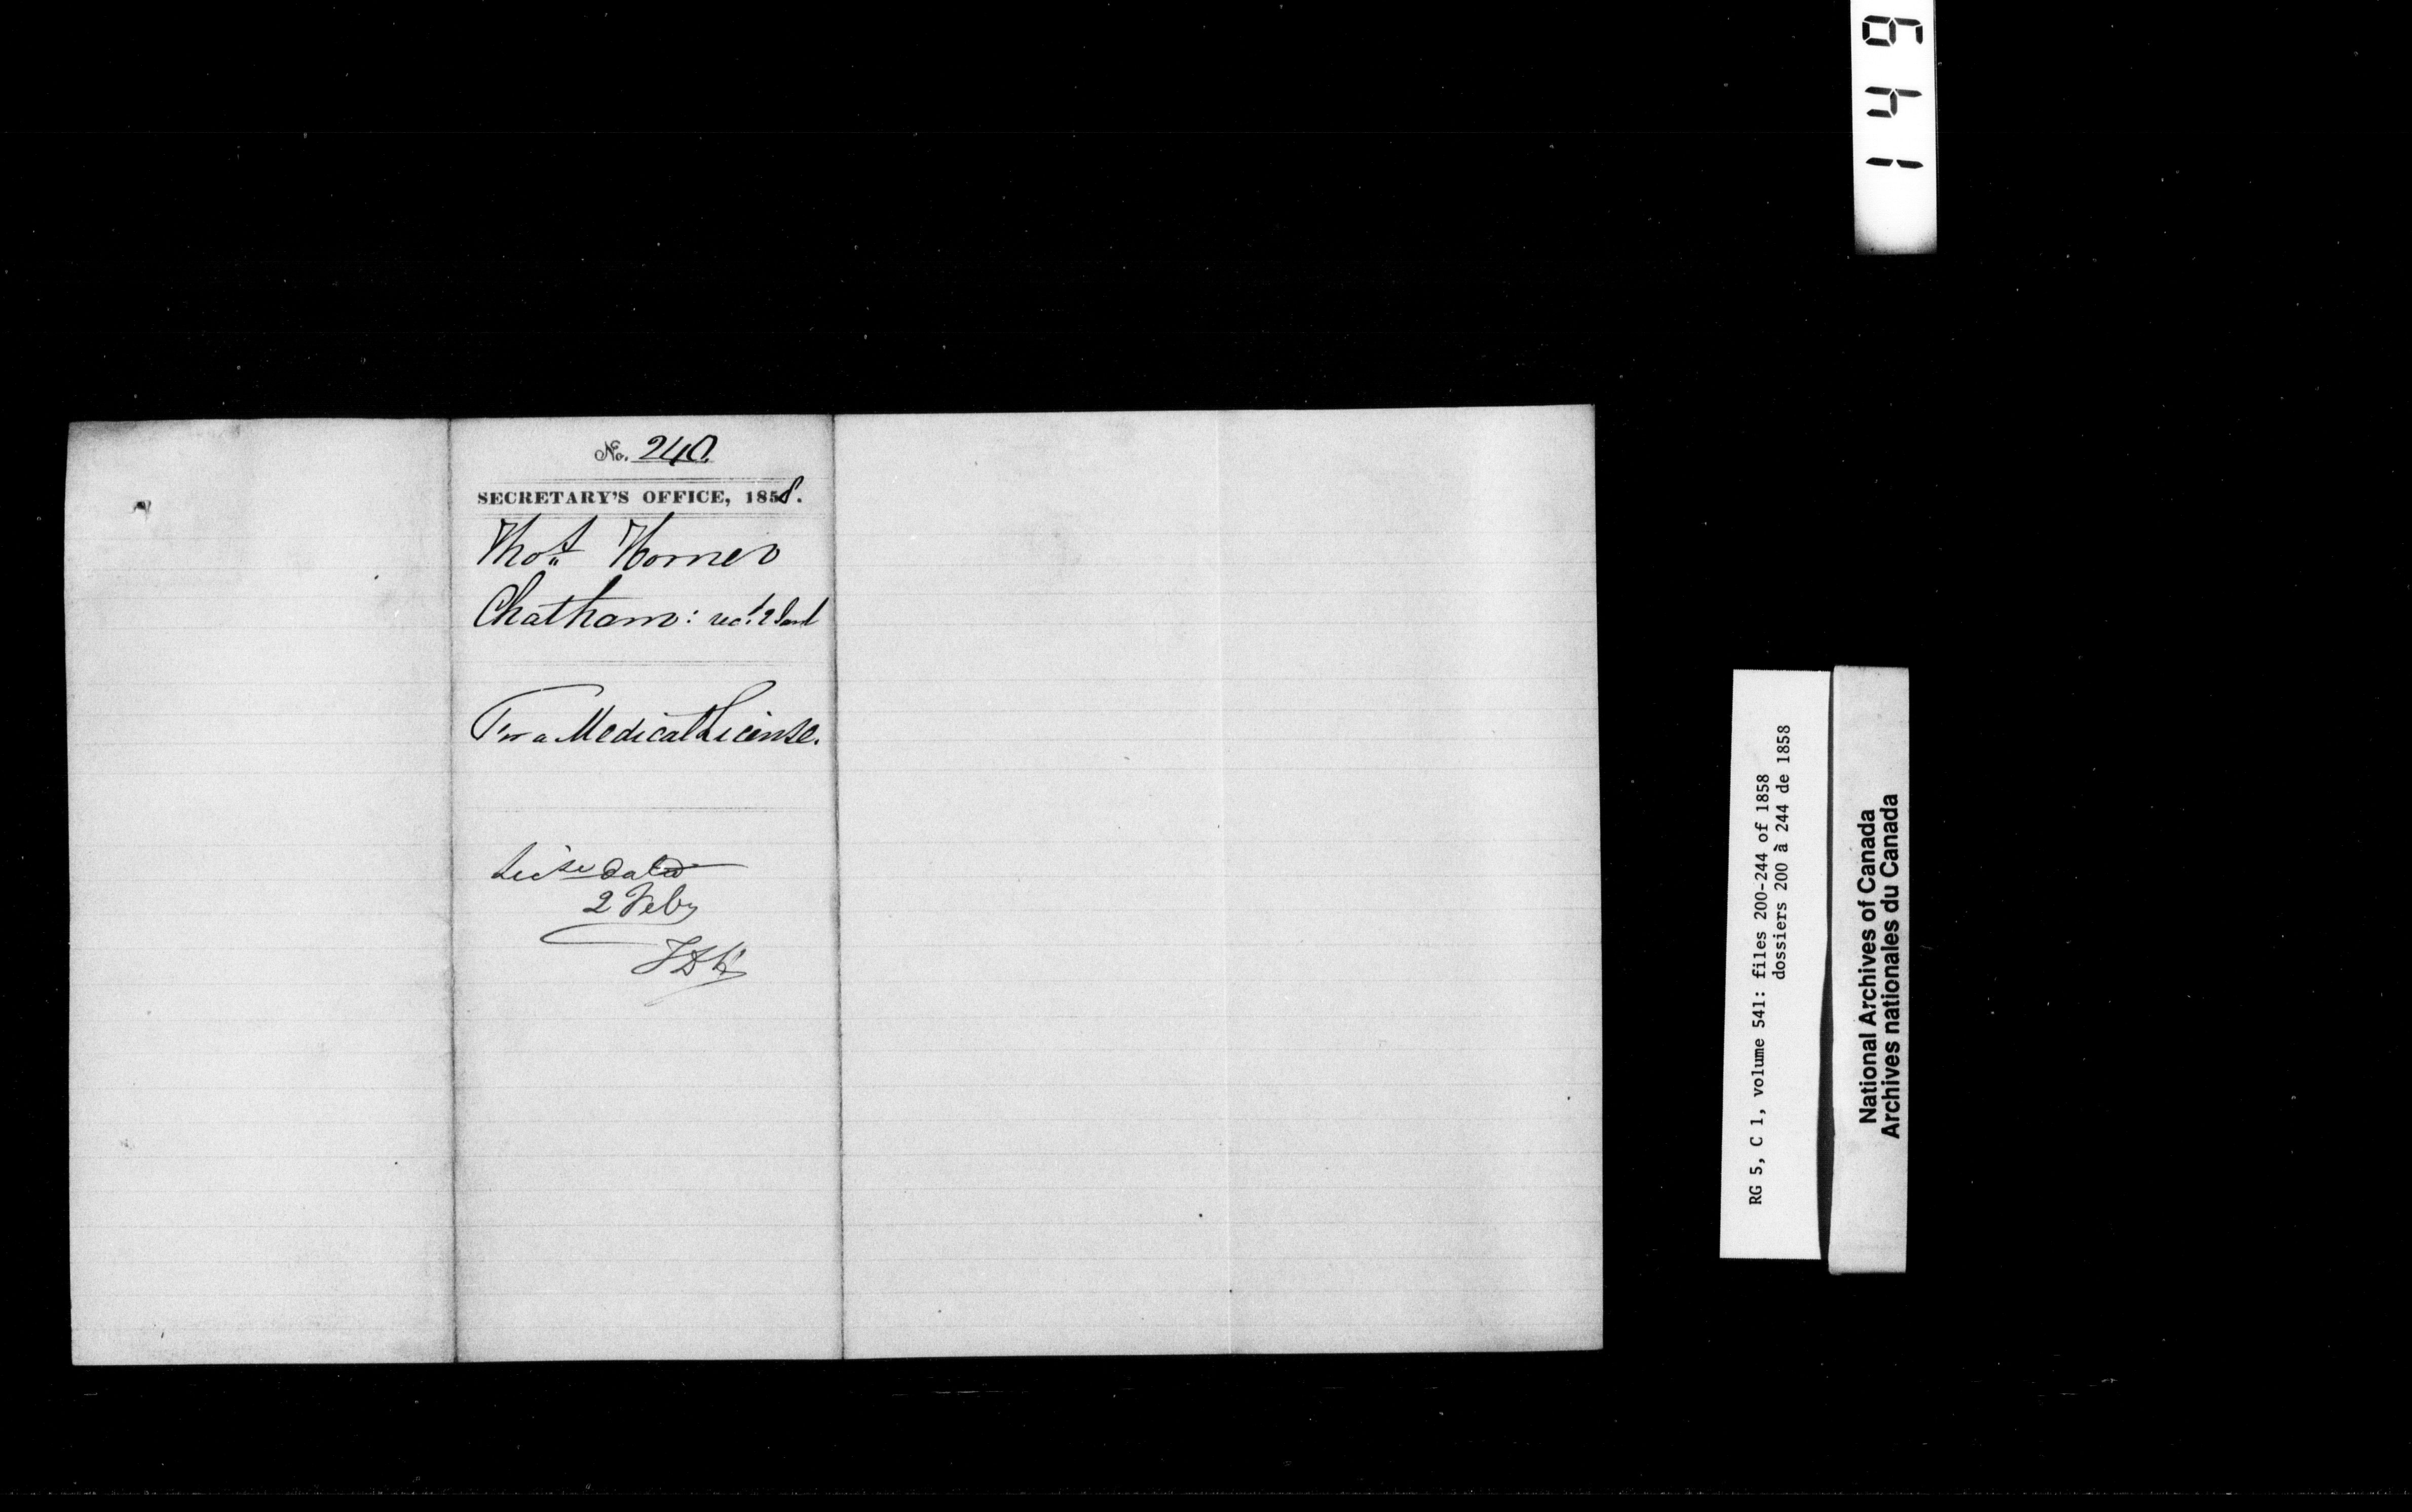 No. 240.
SECRETARY'S OFFICE, 1858.
Thos Horner
Chatham: recd 2
For a Medical License.
Licse dated
2 Feby
149
RG 5, C 1, volume 541: files 200-244 of 1858
dossiers 200 à 244 de 1858
National Archives of Canada
Archives nationales du Canada